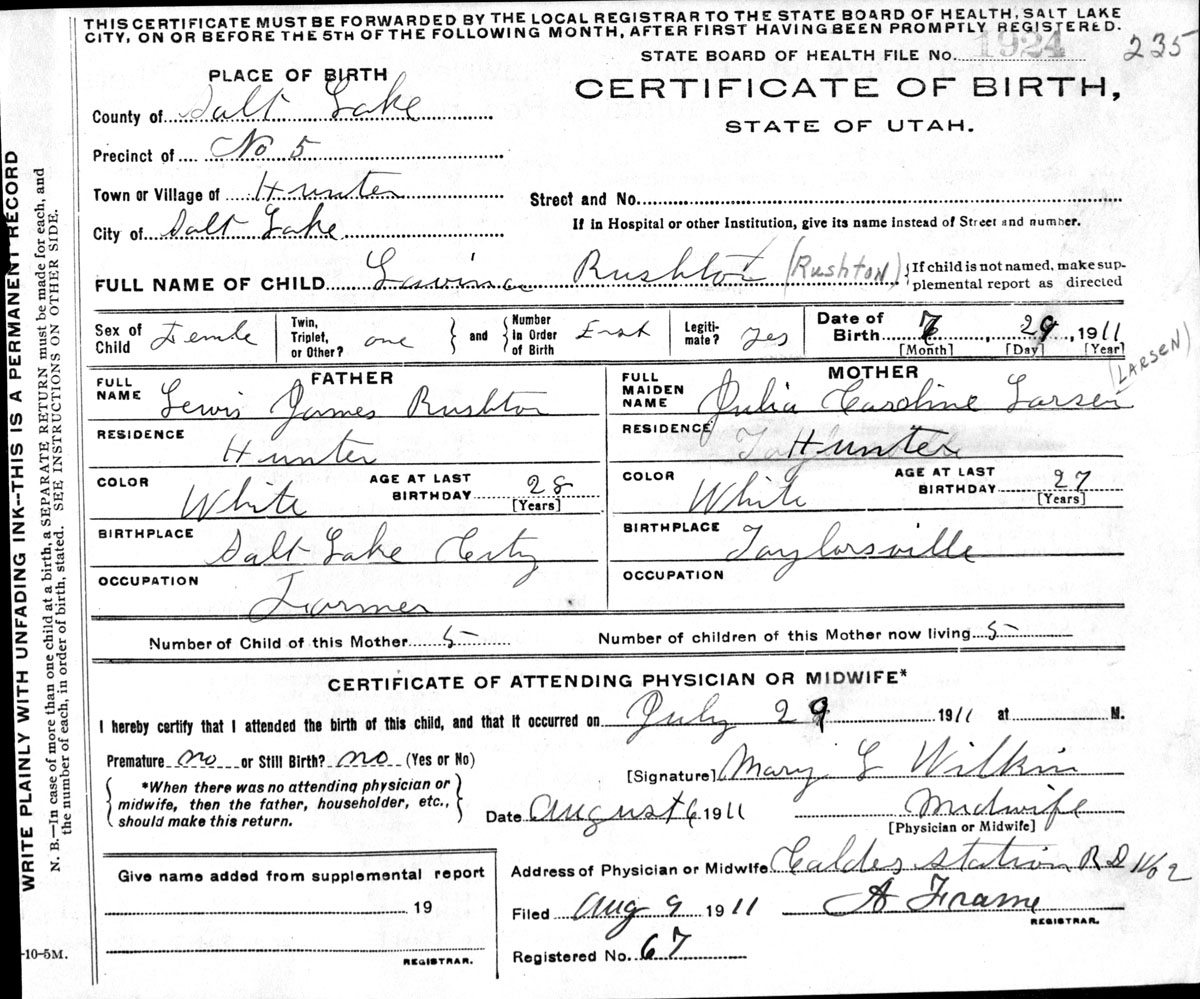 THIS CERTIFICATE MUST BE FORWARDED BY THE LOCAL REGISTRAR TO THE STATE BOARD OF HEALTH, SALT LAKE
CITY, ON OR BEFORE THE 5TH OF THE FOLLOWING MONTH, AFTER FIRST HAVING BEEN PROMPTLY REGISTERED.
STATE BOARD OF HEALTH FILE No. 1924 235
PLACE OF BIRTH
CERTIFICATE OF BIRTH,
STATE OF UTAH.
County of Salt Lake
Precinct of No 5
Town or Village of Hunter
Street and No.
City of Salt Lake
If in Hospital or other Institution, give its name instead of Street and number.
FULL NAME OF CHILD Rushton (RUSHTON) { If child is not named, make sup-
plemental report as directed
Sex of Child Femle Twin, Triplet, or Other? one } and { Number in Order of Birth Legiti-mate? Yes Date of Birth 7 29, 1911
[Month] [Day] [Year]
(LARSEN)
FATHER MOTHER
FULL NAME Lewis James Rushton FULL MAIDEN NAME Julia Caroline Larsen
RESIDENCE Hunter RESIDENCE Hunter
COLOR White AGE AT LAST BIRTHDAY 28 [Years] COLOR White AGE AT LAST BIRTHDAY 27 [Years]
BIRTHPLACE Salt Lake City BIRTHPLACE Taylorsville
OCCUPATION Farmer OCCUPATION
Number of Child of this Mother 5 Number of children of this Mother now living 5
CERTIFICATE OF ATTENDING PHYSICIAN OR MIDWIFE*
I hereby certify that I attended the birth of this child, and that it occurred on July 29 1911 at M.
Premature no or Still Birth? no (Yes or No)
[Signature] Mary L Wilkin
{ *When there was no attending physician or
midwife, then the father, householder, etc.,
should make this return. }
Date August 6 1911 Midwife
[Physician or Midwife]
Give name added from supplemental report
19
REGISTRAR.
Address of Physician or Midwife Calder station R D No 2
Filed Aug 9 1911 A Frame
REGISTRAR.
Registered No. 67
-10-5M.
WRITE PLAINLY WITH UNFADING INK--THIS IS A PERMANENT RECORD
N. B.—In case of more than one child at a birth, a SEPARATE RETURN must be made for each, and
the number of each, in order of birth, stated. SEE INSTRUCTIONS ON OTHER SIDE.